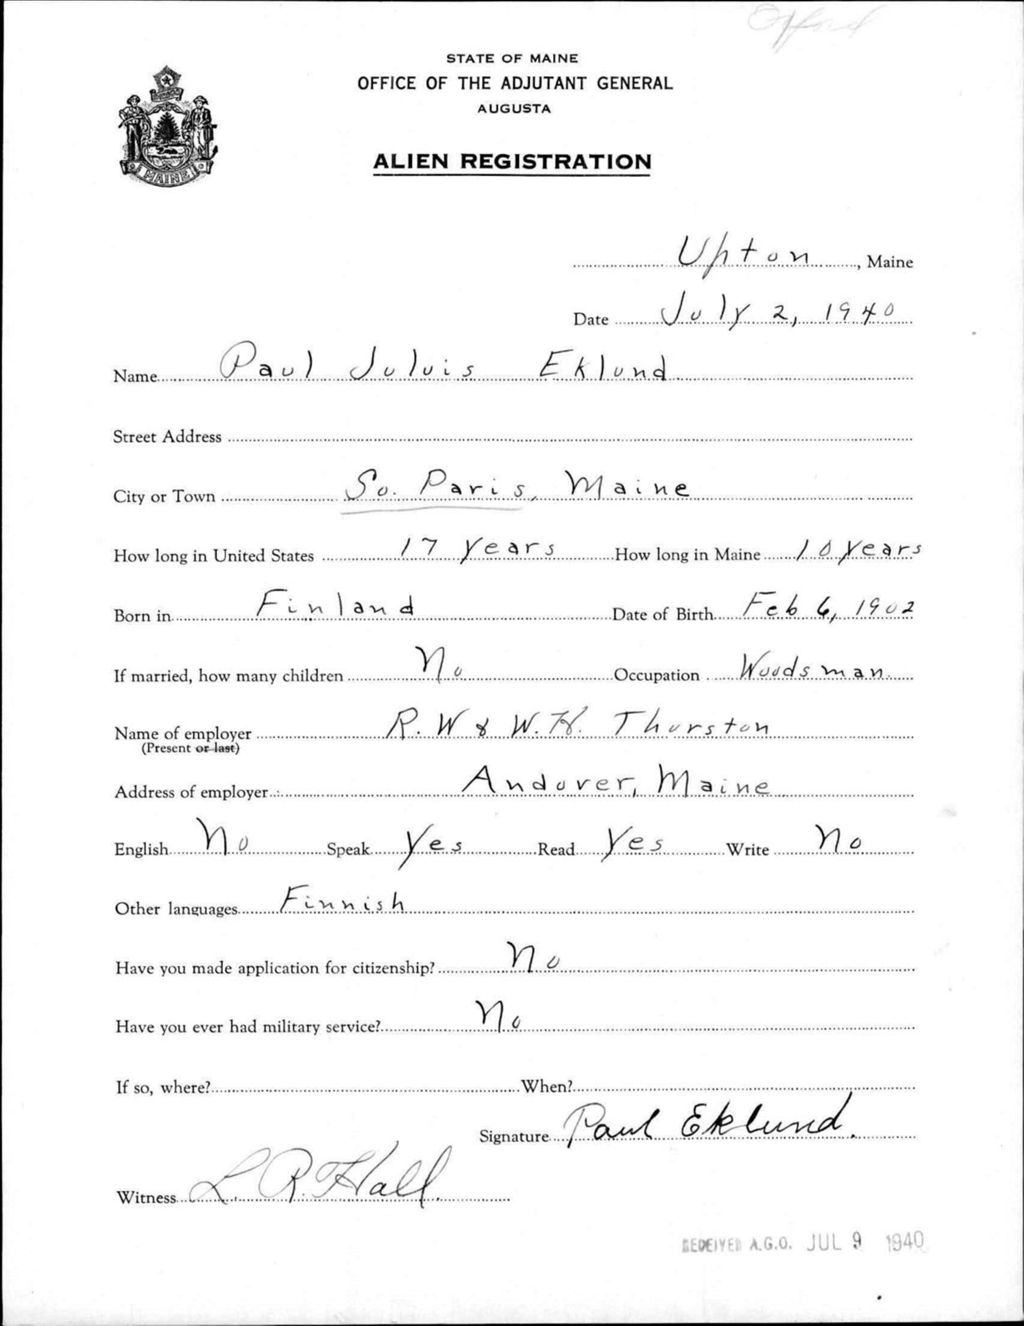 STATE OF MAINE
OFFICE OF THE ADJUTANT GENERAL
AUGUSTA
MAINE
ALIEN REGISTRATION
Upton, Maine
Date July 2, 1940
Name Paul Juluis Eklund
Street Address
City or Town So. Paris, Maine
How long in United States 17 years How long in Maine 10 years
Born in Finland Date of Birth Feb 6, 1902
If married, how many children No Occupation Woodsman
Name of employer R. W & W. H. Thurston
(Present or last)
Address of employer Andover, Maine
English No Speak Yes Read Yes Write No
Other languages Finnish
Have you made application for citizenship? No
Have you ever had military service? No
If so, where? When?
Signature Paul Eklund.
Witness L. R. Hall.
RECEIVED A.G.O. JUL 9 1940